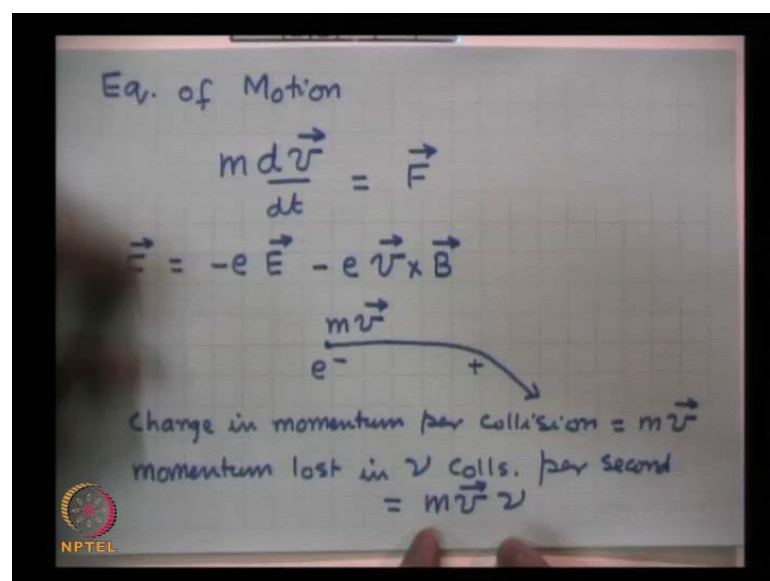 Eq. of Motion
m dv⃗/dt = F⃗
= -e E⃗ - e v⃗ x B⃗
m v⃗
e⁻ +
Change in momentum per collision = m v⃗
momentum lost in ν colls. per second
= m v⃗ ν
NPTEL